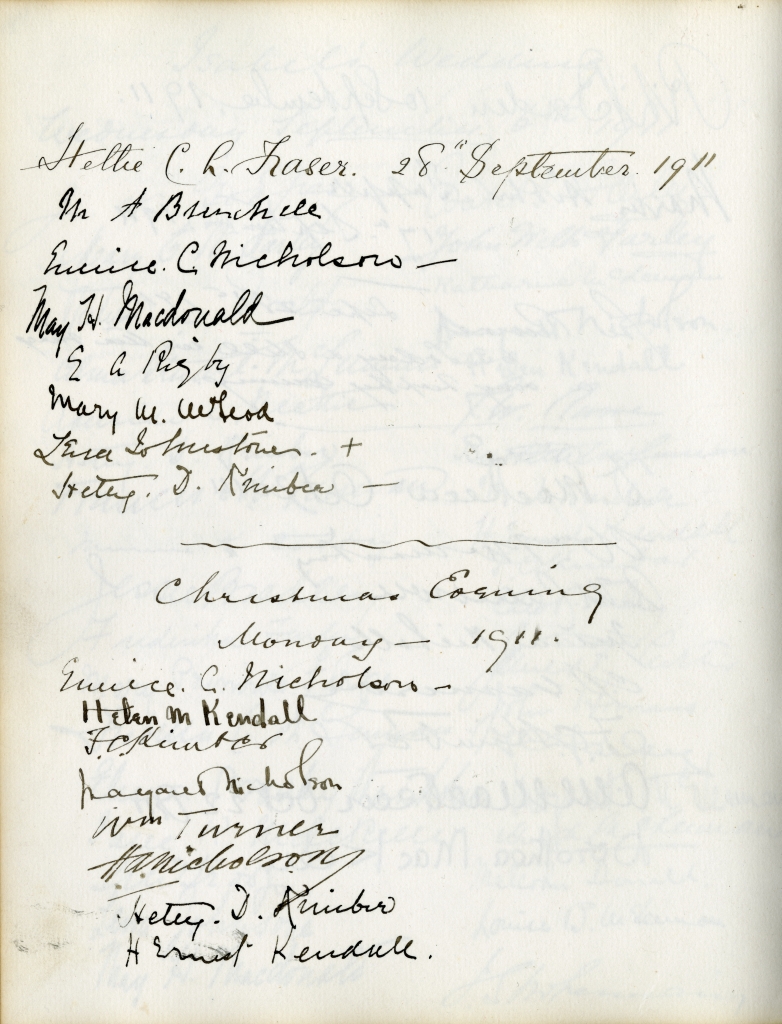 Hettie C. L. Fraser. 28" September. 1911
M A
Eunice. C. Nicholson —
May H. Macdonald
E A Rigby
Mary M. McLeod
Lena Johnstone. +
Hetty. D. Kimber —
Christmas Evening
Monday — 1911.
Eunice. C. Nicholson —
Helen M Kendall
F C Kimber
Margaret Nicholson
Wm Turner
H. A. Nicholson
Hetty. D. Kimber
H Ernest Kendall.